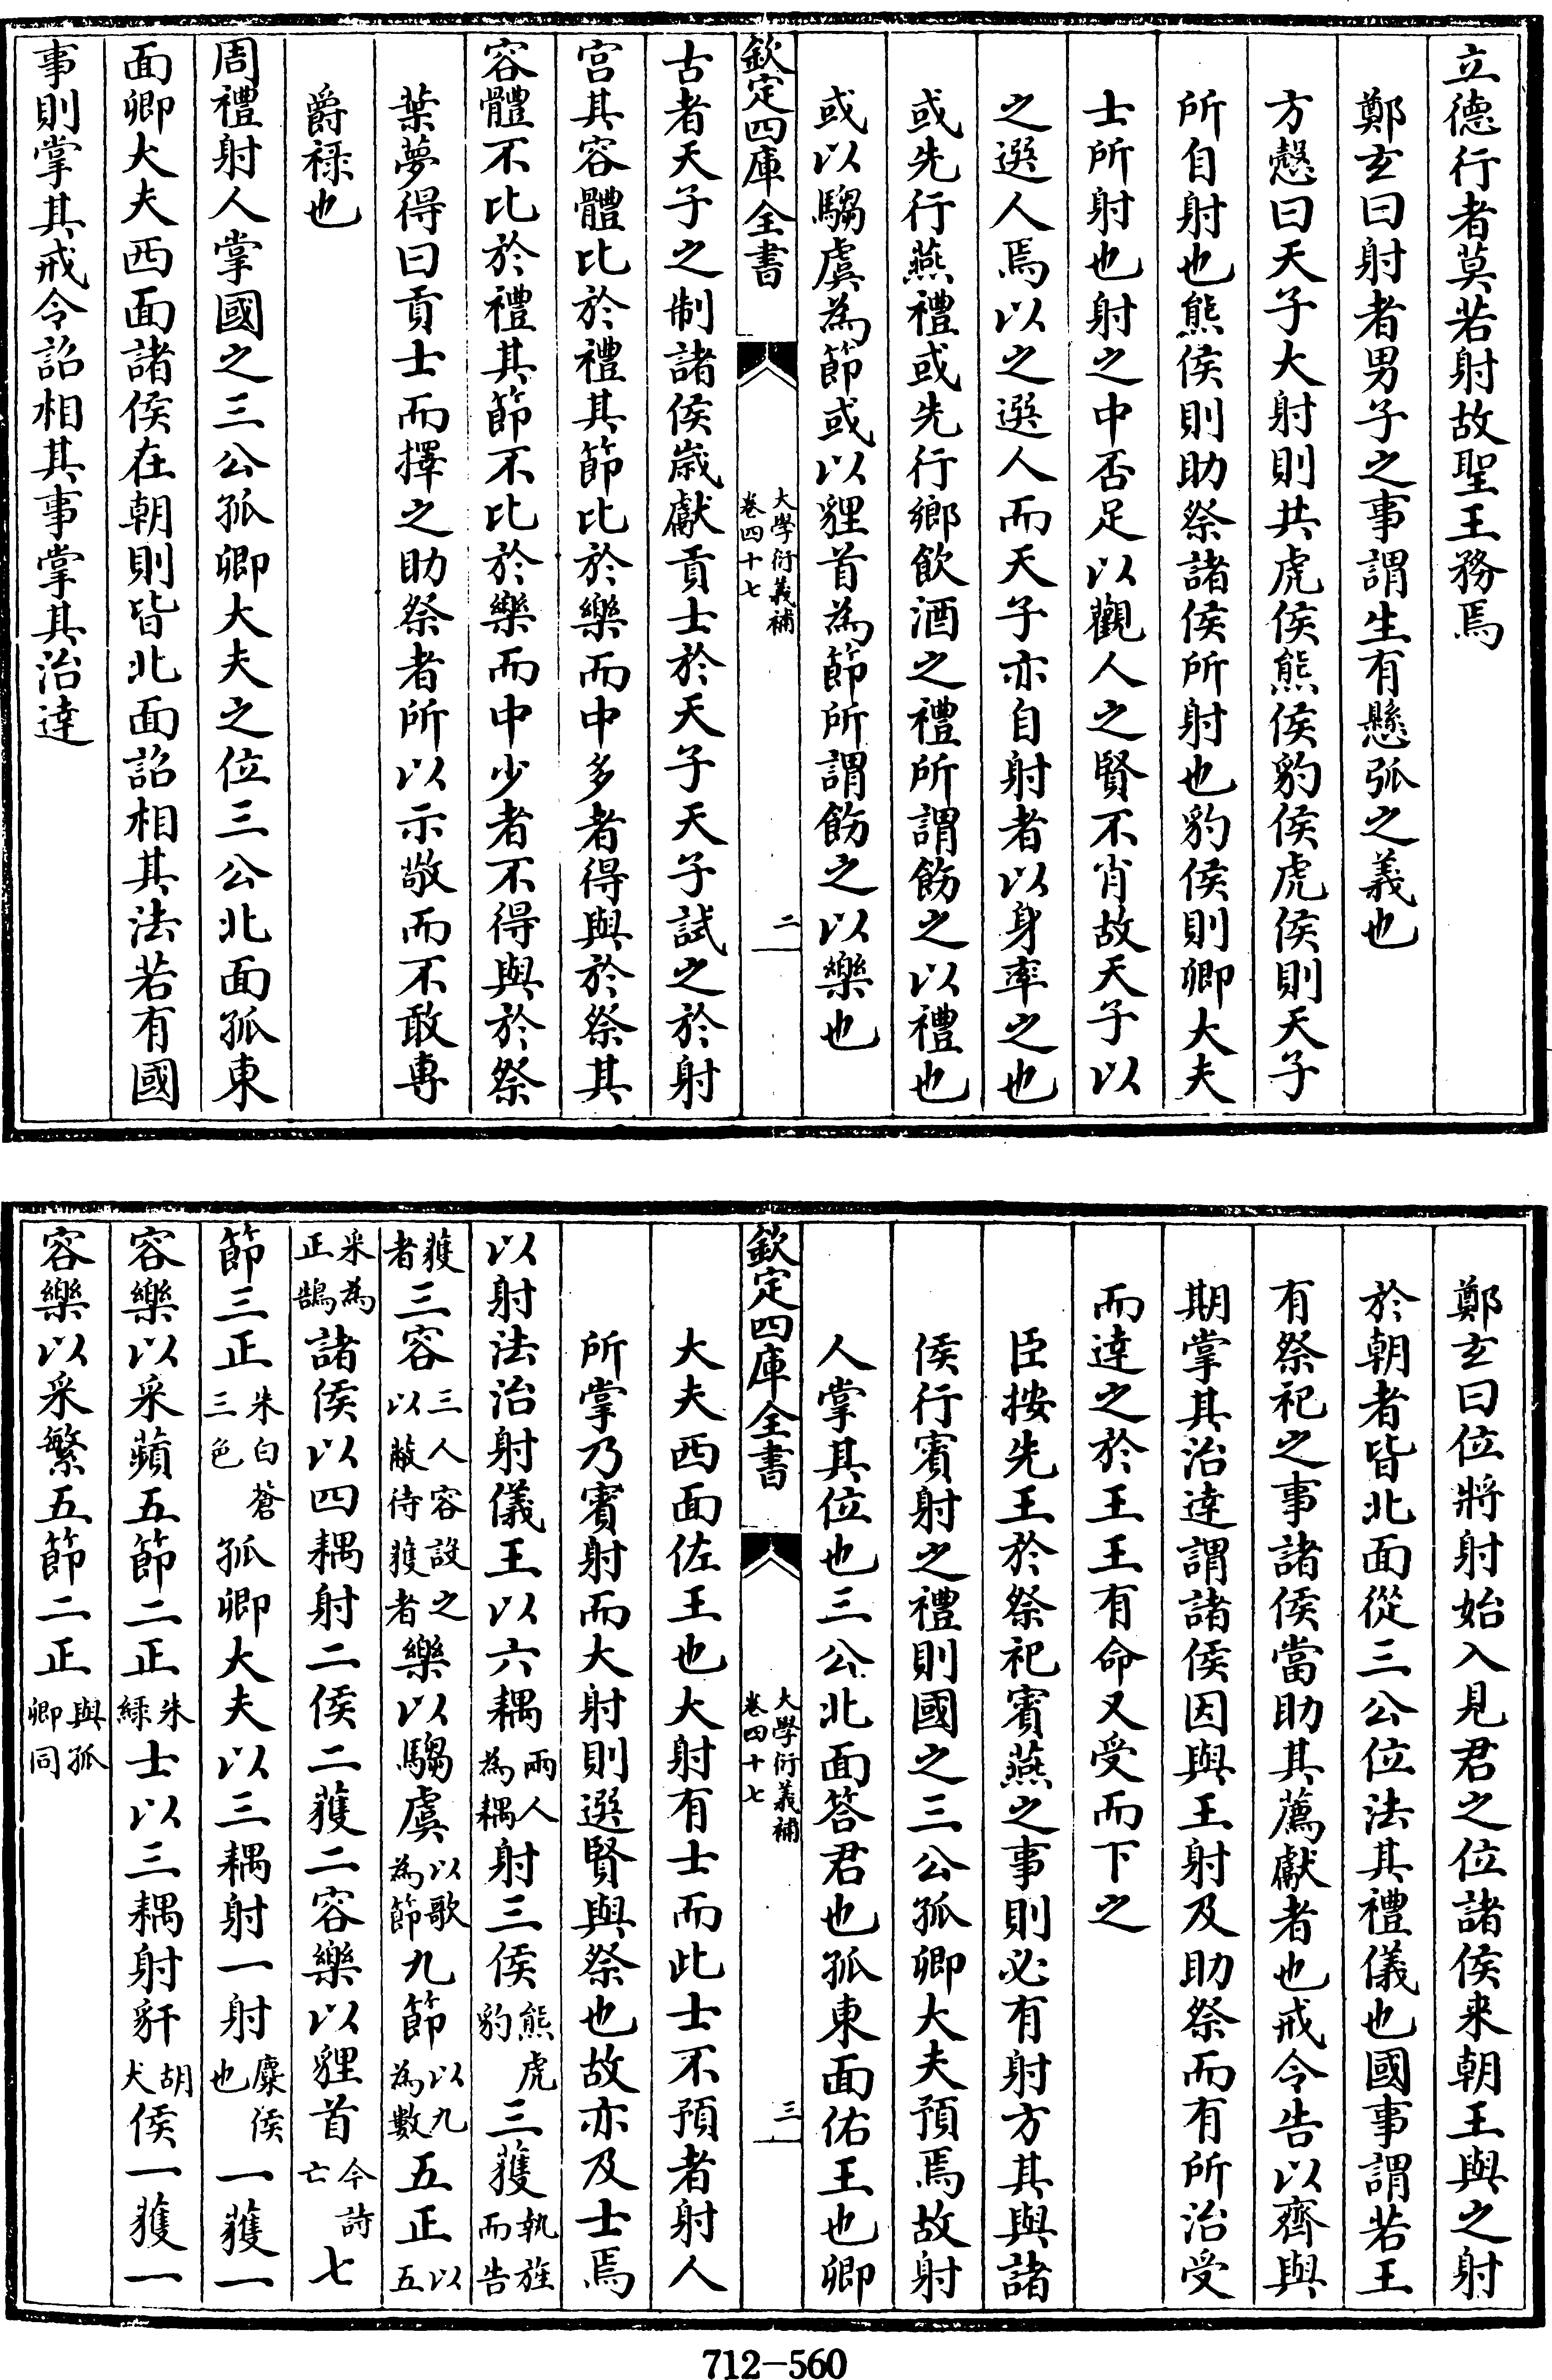 立德行者莫若射故聖王務焉
鄭玄曰射者男子之事謂生有懸弧之義也
方慤曰天子大射則共虎侯熊侯豹侯虎侯則天子
所自射也熊侯則助祭諸侯所射也豹侯則卿大夫
士所射也射之中否足以觀人之賢不肖故天子以
之選人焉以之選人而天子亦自射者以身率之也
或先行燕禮或先行鄉飲酒之禮所謂飭之以禮也
或以騶虞為節或以貍首為節所謂飭之以樂也
欽定四庫全書
大學衍義補
卷四十七
二
古者天子之制諸侯歲獻貢士於天子天子試之於射
宮其容體比於禮其節比於樂而中多者得與於祭其
容體不比於禮其節不比於樂而中少者不得與於祭
葉夢得曰貢士而擇之助祭者所以示敬而不敢專
爵祿也
周禮射人掌國之三公孤卿大夫之位三公北面孤東
面卿大夫西面諸侯在朝則皆北面詔相其法若有國
事則掌其戒令詔相其事掌其治逹
鄭玄曰位將射始入見君之位諸侯来朝王與之射
於朝者皆北面從三公位法其禮儀也國事謂若王
有祭祀之事諸侯當助其薦獻者也戒令告以齊與
期掌其治逹謂諸侯因與王射及助祭而有所治受
而逹之於王王有命又受而下之
臣按先王於祭祀賓燕之事則必有射方其與諸
侯行賓射之禮則國之三公孤卿大夫預焉故射
人掌其位也三公北面答君也孤東面佑王也卿
欽定四庫全書
大學衍義補
卷四十七
三
大夫西面佐王也大射有士而此士不預者射人
所掌乃賓射而大射則選賢與祭也故亦及士焉
以射法治射儀王以六耦兩人為耦射三侯熊虎豹三獲執旌而告
獲者三容三人容設之以蔽待獲者樂以騶虞以歌為節九節以九為數五正以五
采為正鵠諸侯以四耦射二侯二獲二容樂以貍首今詩亡七
節三正朱白蒼三色孤卿大夫以三耦射一射麋侯也一獲一
容樂以采蘋五節二正朱緑士以三耦射豻胡犬侯一獲一
容樂以采繁五節二正與孤卿同
712-560